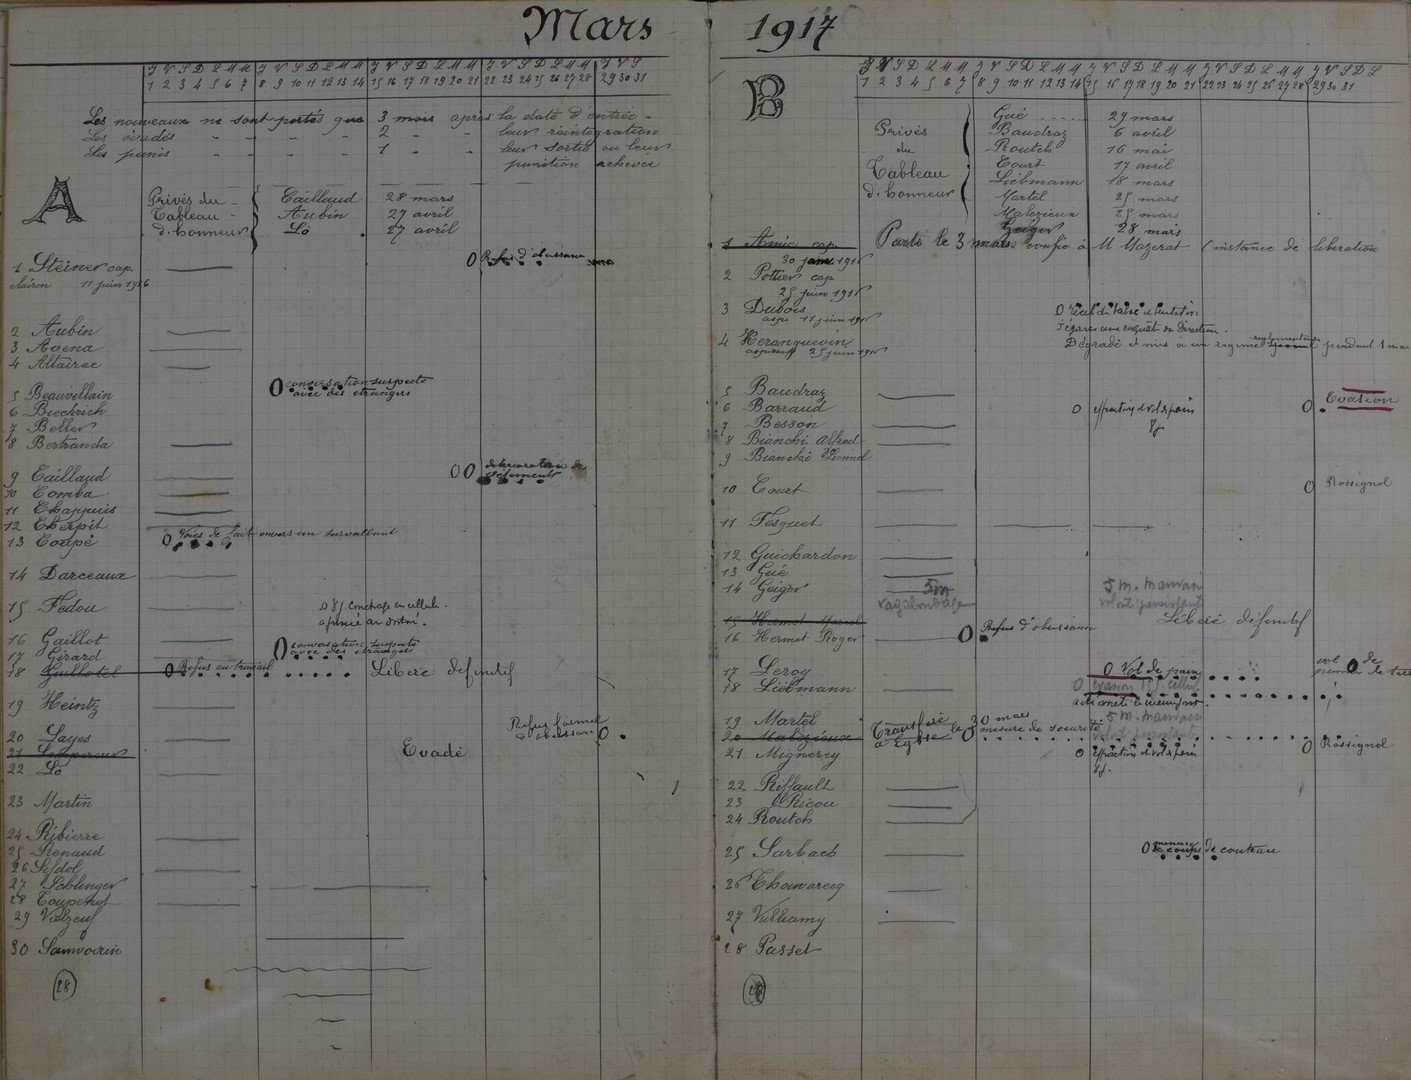 Mars 1917
J V S D L M M J V S D L M M J V S D L M M J V S D L M M J V S
1 2 3 4 5 6 7 8 9 10 11 12 13 14 15 16 17 18 19 20 21 22 23 24 25 26 27 28 29 30 31
Les nouveaux ne sont portés que 3 mois après la date d'entrée -
Les évadés - - - 2 - leur réintégration
Les punis - - - 1 - leur sortie ou leur
punition achevée
A
Privés du Tableau d'honneur
Caillaud 28 mars
Aubin 27 avril
Lô 27 avril
1 Steiner cap. O Refus d'obéissance
clairon 11 juin 1916
2 Aubin
3 Avena
4 Altairac
5 Beauvillain O conversation suspecte
avec des étrangers
6 Buchrich
7 Beller
8 Bertranda
9 Caillaud OO détérioration de
vêtements
10 Comba
11 Chappuis
12 Cherpit
13 Coupé O Voies de fait envers un surveillant
14 Darceaux
15 Fedou O 8 j. couchage en cellule.
16 Gaillot
17 Girard O conversation suspecte
avec des étrangers
18 Guillotel O Refus au travail Libéré définitif
19 Heintz
20 Layes Refus formel
d'obéissance O
21 Evadé
22 Lô
23 Martin
24 Ribierre
25 Renaud
26
27
28
29
30 Samvoirin
28
B
J V S D L M M J V S D L M M J V S D L M M J V S D L M M J V S D L
1 2 3 4 5 6 7 8 9 10 11 12 13 14 15 16 17 18 19 20 21 22 23 24 25 26 27 28 29 30 31
Privés du Tableau d'honneur
Gué 29 mars
Baudraz 6 avril
Routch 16 mai
Court 17 avril
Liebmann 18 mars
Martel 25 mars
Malezieux 25 mars
Geiger 28 mars
1 Amic cap. Parti le 3 mars confié à M Mazerat (instance de libération
2 Pottier cap
25 juin 1916
3 Dubois
11 juin 1916
4 Heranguevin Dégradé et mis à un régime pendant 1 mois
25 juin 1916
5 Baudraz
6 Barraud O effraction et vol de pain O Evasion
8 j
7 Besson
8 Bianchi Alfred
9 Bianchi Lionnel
10 Court O Rossignol
11 Fesquet
12 Guichardon
13 Gué
14 Geiger 5 m vagabondage 5 m. mauvaise
15 Hermet Marcel Libéré définitif
16 Hermet Roger O Refus d'obéissance
17 Leroy O Vol de pain
18 Liebmann O Evasion 15 j. cell.
19 Martel 5 m. mauvaise
20 Malezieux Transféré à Eysse le 30 mars mesure de sécurité
21 Mignerey O effraction et vol de pain O Rossignol
8 j.
22 Riffault
23 Ricou
24 Routch
25 Sarbach O menace de coups de couteau
26 Thouvarecq
27 Vulliamy
28 Passet